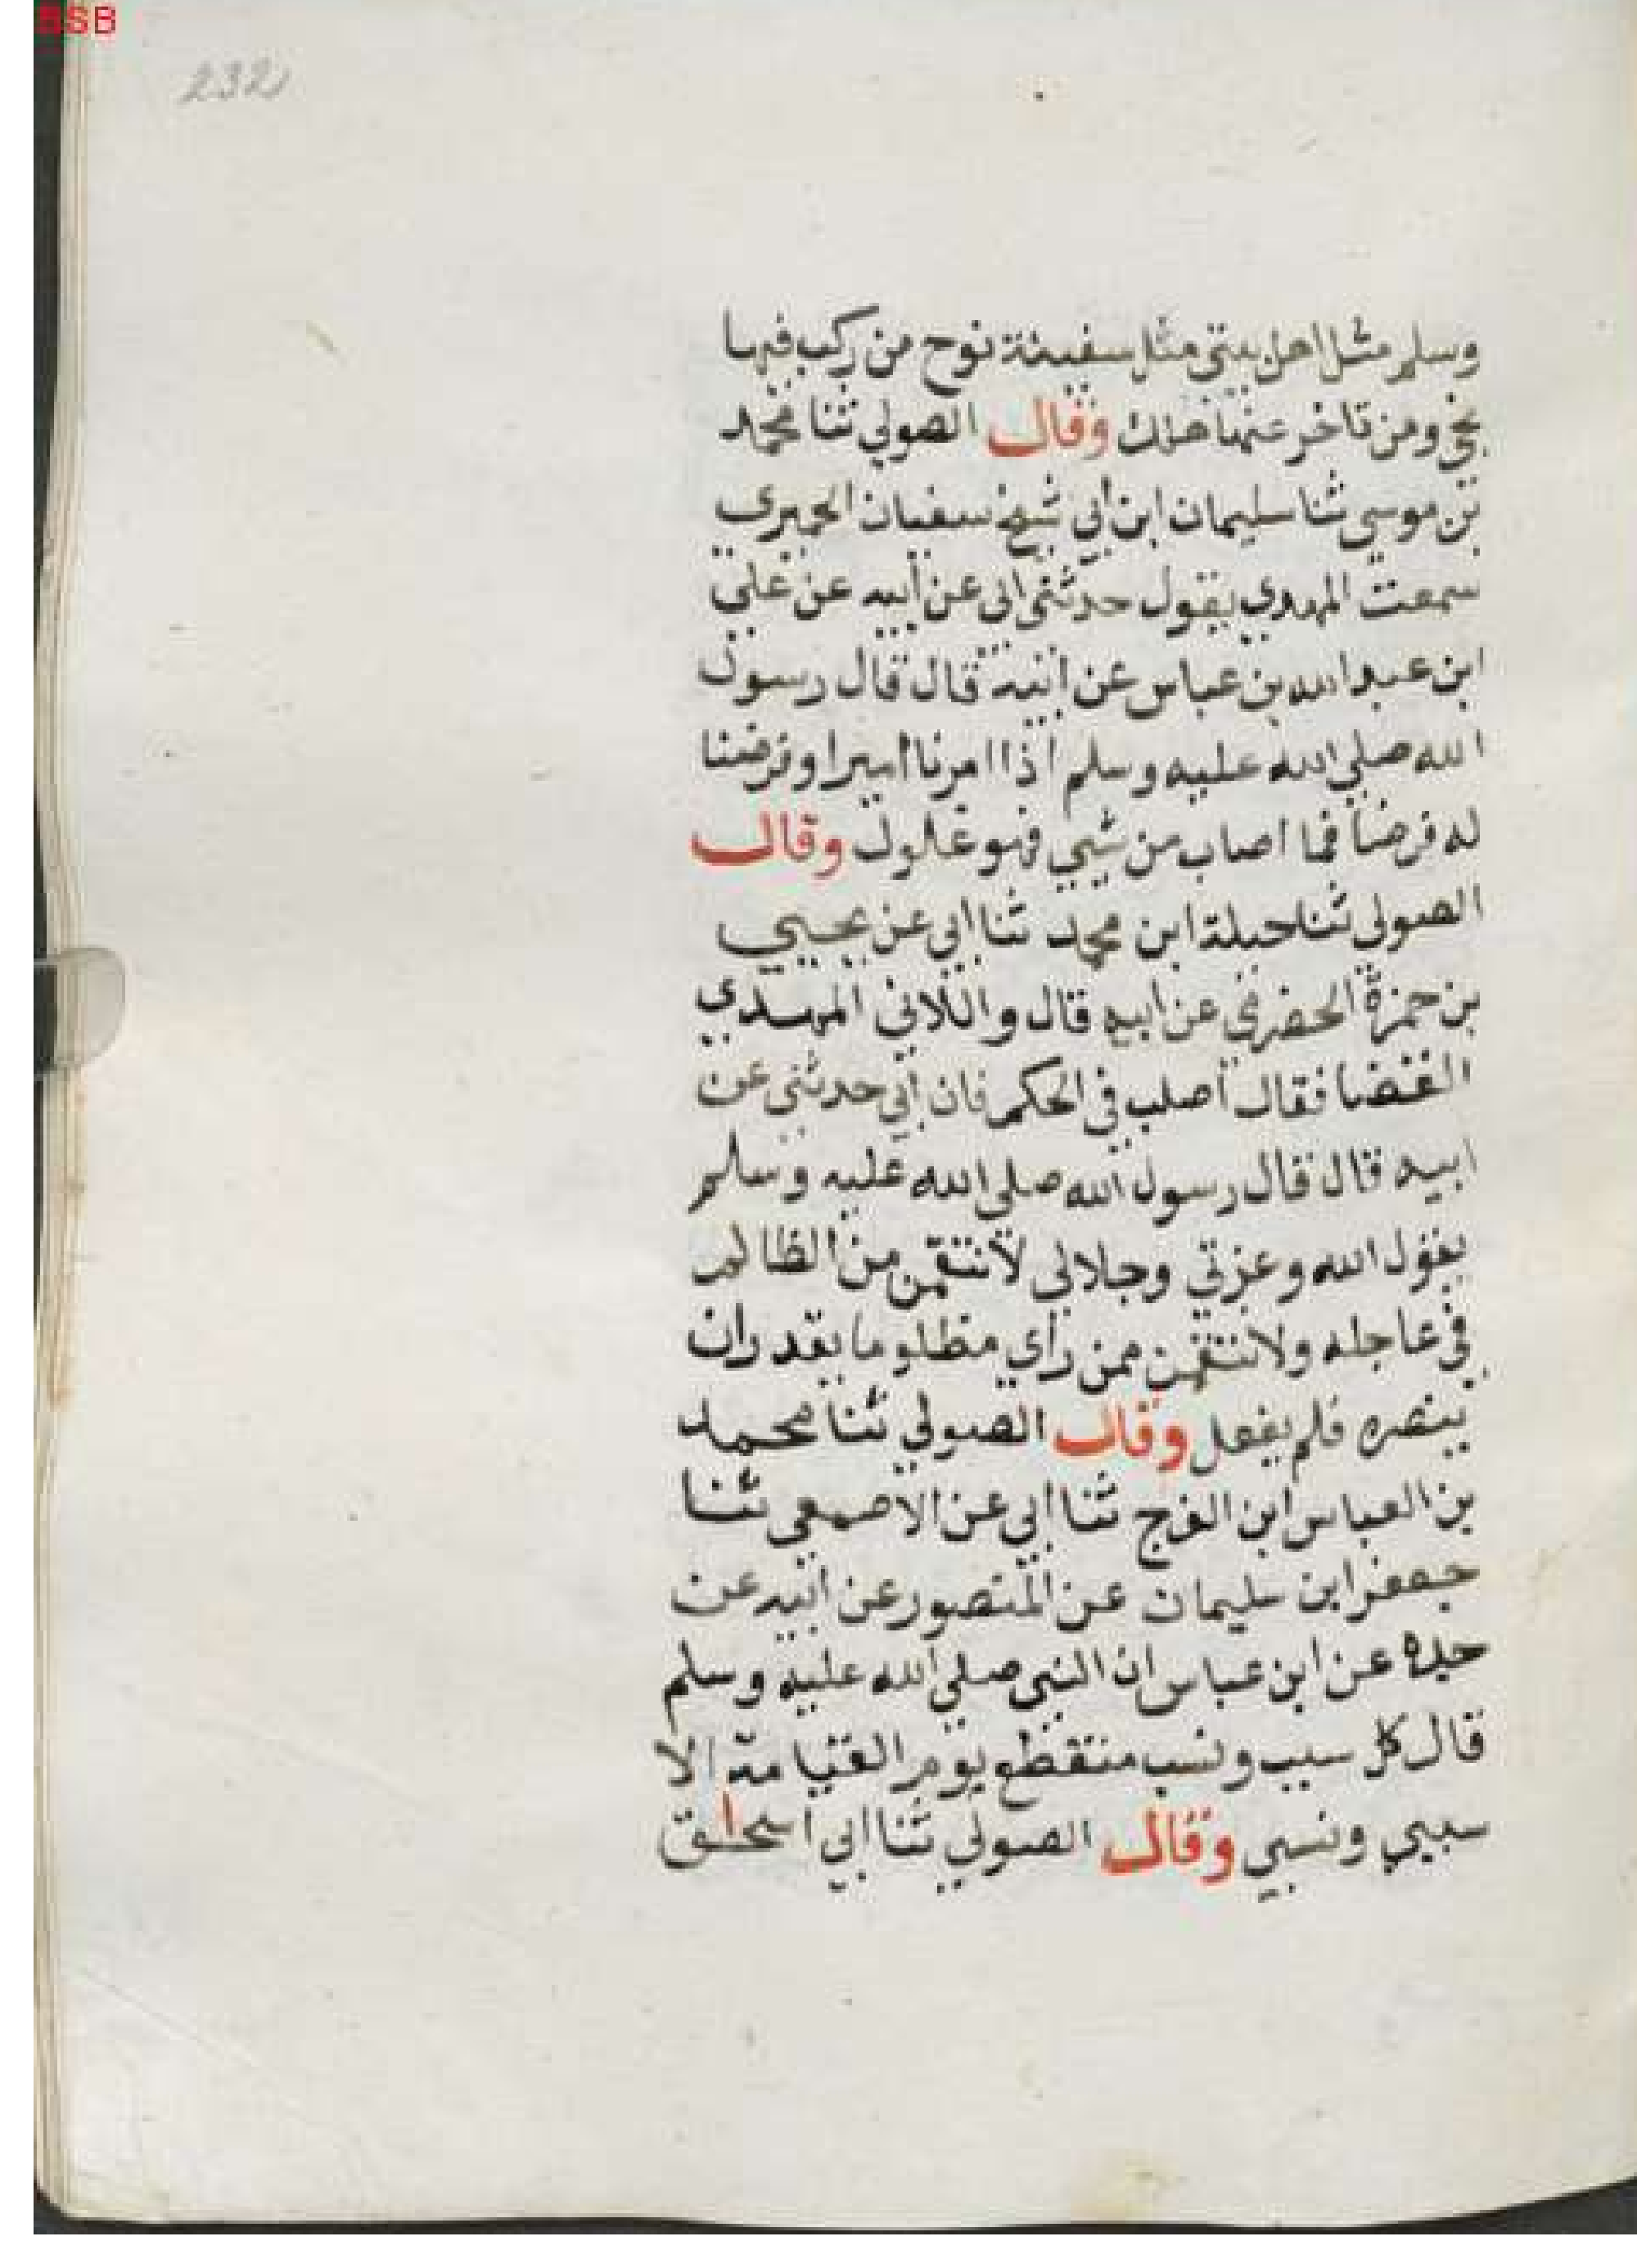 BSB
232
وسلم مثل اهل بيتي مثل سفينة نوح من ركب فيها
نجي ومن تاخر عنها هلك وقال الصولي ثنا محمد
بن موسي ثنا سليمان ابن ابي شيخ سفيان الحميري
سمعت المهدي يقول حدثني ابي عن أبيه عن علي
ابن عبد الله بن عباس عن ابيه قال قال رسول
الله صلي الله عليه وسلم اذا امرنا اميرا وفرضنا
له فرضا فما اصاب من شيي فهو غلول وقال
الصولي ثنا جبلة ابن محمد ثنا ابي عن يحيي
بن حمزة الحضرمي عن ابيه قال واللاني المهدي
القضا فقال أصلب في الحكم فان أبي حدثني عن
ابيه قال قال رسول الله صلي الله عليه وسلم
يقول الله وعزتي وجلالي لانتقمن من الظالم
في عاجله ولانتقمن ممن رأي مظلوما يقدر ان
ينصره فلم يفعل وقال الصولي ثنا محمد
بن العباس ابن الفرج ثنا ابي عن الاصمعي ثنا
جعفر ابن سليمان عن المنصور عن ابيه عن
جده عن ابن عباس ان النبي صلي الله عليه وسلم
قال كل سبب ونسب منقطع يوم القيامة الا
سببي ونسبي وقال الصولي ثنا ابي اسحاق